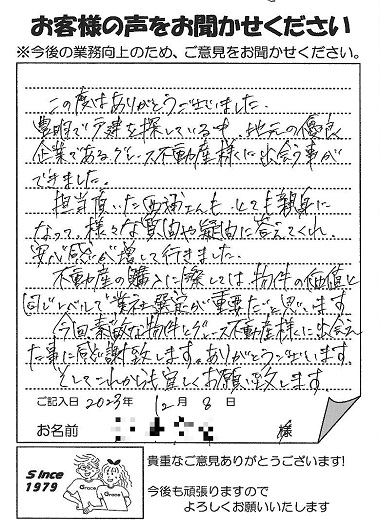 お客様の声をお聞かせください
※今後の業務向上のため、ご意見をお聞かせください。
この度はありがとうございました。
豊明で戸建を探している中、地元の優良
企業であるグレース不動産様に出会う事が
できました。
担当頂いた西浦さんも、とても親身に
なって、様々な質問や疑問に答えてくれ、
安心感が増して行きました。
不動産の購入に際しては、物件の価値と
同じレベルで業社選定が重要だと思います。
今回、素敵な物件とグレース不動産様に出会え
た事に感謝致します。ありがとうございます。
そしてこれからも宜しくお願い致します。
ご記入日 2023年 12月 8日
お名前 様
Since
1979
Grace
Grace
貴重なご意見ありがとうございます!
今後も頑張りますので
よろしくお願いいたします